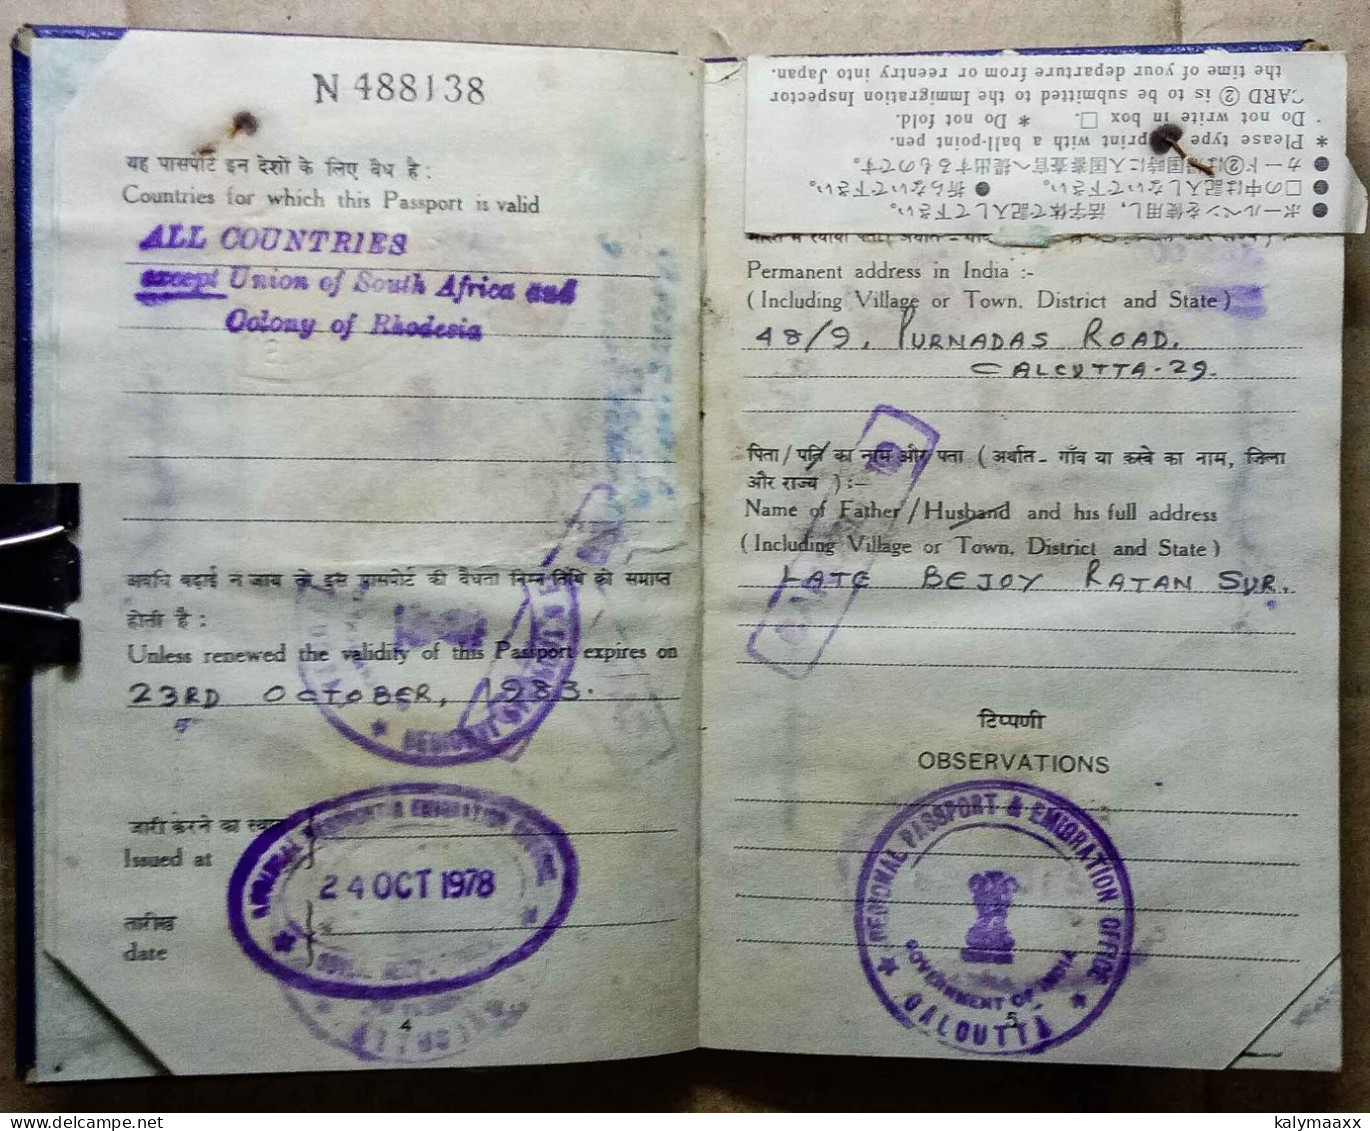 N 488138
यह पासपोर्ट इन देशों के लिए वैध है :
Countries for which this Passport is valid
ALL COUNTRIES
except Union of South Africa and
Colony of Rhodesia
अवधि बढ़ाई न जाय तो इस पासपोर्ट की वैधता निम्न तिथि को समाप्त
होती है :
Unless renewed the validity of this Passport expires on
23RD OCTOBER, 1983.
जारी करने का
Issued at
24 OCT 1978
तारीख
date
4
the time of your departure from or reentry into Japan.
CARD ② is to be submitted to the Immigration Inspector
Do not write in box □. * Do not fold.
* Please type print with a ball-point pen.
● カード②は 国時に入国審査官へ提出するものです。
● □の中は記入しないで下さい。 ● 折らないで下さい。
● ボールペンを使用し、活字体で記入して下さい。
Permanent address in India :-
(Including Village or Town, District and State)
48/9, PURNADAS ROAD.
CALCUTTA-29.
पिता/पति का नाम और पता ( अर्थात- गाँव या कस्बे का नाम, जिला
और राज्य ) :-
Name of Father/Husband and his full address
(Including Village or Town, District and State)
LATE BEJOY RATAN SUR.
टिप्पणी
OBSERVATIONS
REGIONAL PASSPORT & EMIGRATION OFFICE
GOVERNMENT OF INDIA
CALCUTTA
5
kalymaaxx